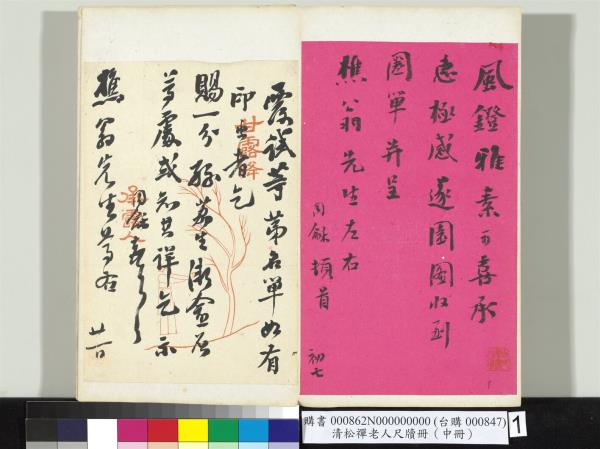 風鐙雅素可喜承
惠極感遂園圖收到
圈單并呈
樵翁先生左右
同龢頓首
初七
覆試等第名單如有
印出者乞
賜一分
等處或知其詳乞示
樵翁先生等右
廿一日
甘露降
購書 000862N000000000 (台購 000847)
清松禪老人尺牘冊（中冊）
1